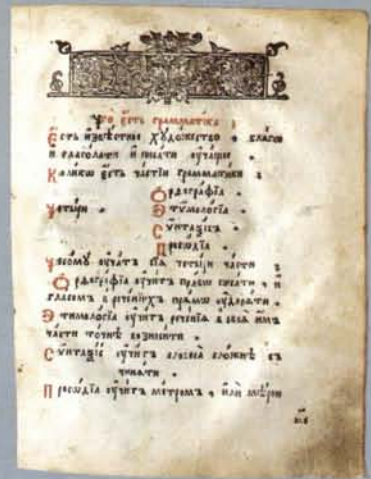 Что̀ є҆́сть грамма́тїка ;
Є҆́сть и҆звѣ́стное хꙋдо́жество , бла́гѡ
и҆ глаго́лати и҆ писа́ти ᲂу҆ча́щее .
Коли́кѡ є҆́сть часті́й грамма́тики ;
Ѻ҆рѳогра́фїа .
Четы́ри . Э҆тѷмоло́гїа .
Сѷ́нтаѯїс .
Просѡді́а .
Чесомꙋ̀ ᲂу҆́чатъ сїѧ̑ четы́ри ча́сти ;
Ѻ҆рѳогра́фїа ᲂу҆чи́тъ пра́вѡ писа́ти , и҆
гла́сомъ в рече́нїихъ прѧ́мѡ ᲂу҆дарѧ́ти .
Э҆тимоло́гїа ᲂу҆чи́тъ рече́нїѧ в своѧ̑ и҆̀мъ
ча́сти то́чнѣ возноси́ти .
Сѷ́нтаѯїс ᲂу҆чи́тъ словеса̀ сло́жнѣ съ
чинѧ́ти .
Просѡді́а ᲂу҆чи́тъ ме́тромъ , и҆лѝ мѣ́рою